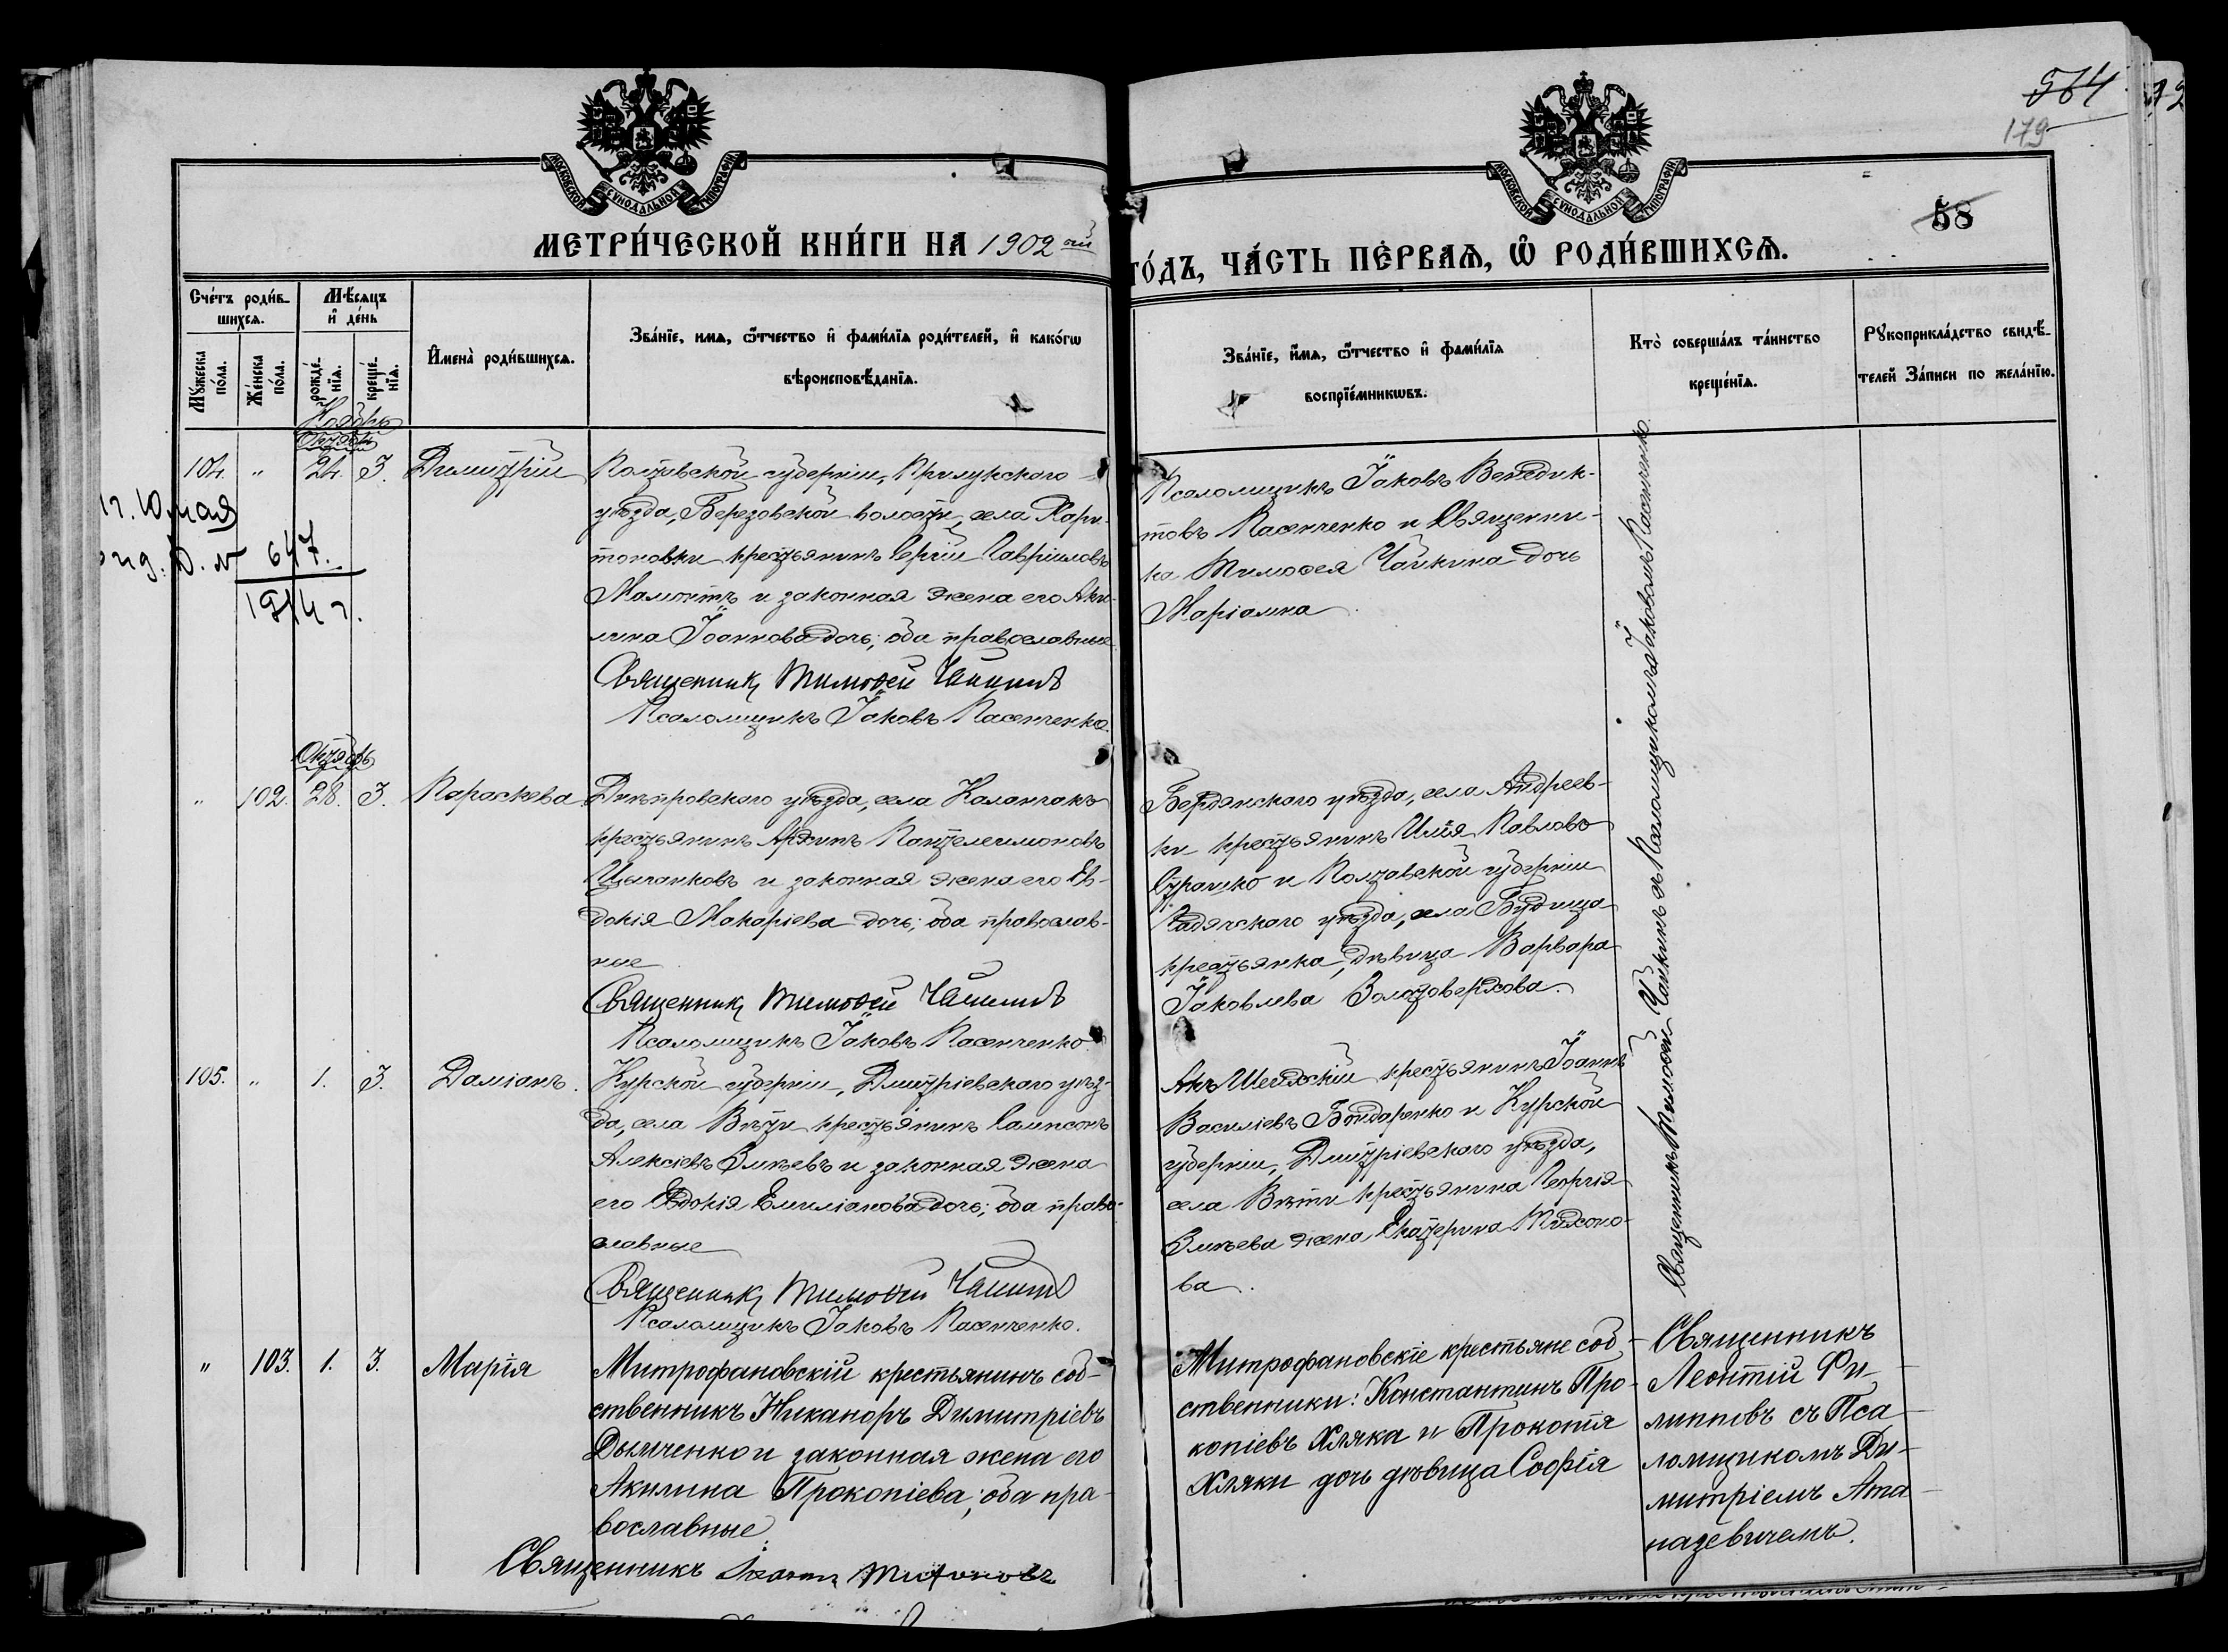 564
179
58
МОСКОВСКОЙ СѴНОДАЛЬНОЙ ТИПОГРАФІИ
МОСКОВСКОЙ СѴНОДАЛЬНОЙ ТИПОГРАФІИ
МЕТРИ́ЧЕСКОЙ КНИ́ГИ НА 1902 ой
ГО́ДЪ, ЧА́СТЬ ПЕ́РВАѦ, Ѿ РОДИ́ВШИХСѦ.
Сче́тъ роди́в-
шихсѧ.
Мѣ́сѧцъ
и҆ де́нь
Мꙋ́жеска по́ла.
Же́нска по́ла.
рожде́-нїѧ.
креще́-нїѧ.
И҆мена̀ роди́вшихсѧ.
Зва́нїе, имѧ, ѻ҆́тчество и҆ фами́лїѧ роди́телей, и҆ како́гѡ
вѣроисповѣ́данїѧ.
Зва́нїе, и҆́мѧ, ѻ҆́тчество и҆ фами́лїѧ
воспрїе́мникѡвъ.
Кто̀ соверша́лъ та́инство
креще́нїѧ.
Рꙋкоприкла́дство свидѣ́-
телей За́писи по жела́нїю.
Ноябрь
Октябрь
104. " 24. 3. Димитрій
Полтавской губерніи, Прилукского
уѣзда, Березовской волости, села Хари-
тоновки крестьянинъ Сергій Гавріиловъ
Мамонтъ и законная жена его Аки-
лина Іоаннова дочь; оба православные.
Священникъ Тимоѳей Чайкинъ
Псаломщикъ Іаковъ Пасенченко.
Псаломщикъ Іаковъ Венедик-
товъ Пасенченко и Священни-
ка Тимоѳея Чайкина дочь
Маріамна.
10 мая
647.
1914 г.
Октябрь
" 102. 28. 3. Параскева
Днѣпровского уѣзда, села Каланчакъ
крестьянинъ Пантелеимоновъ
Цыганковъ и законная жена его Ев-
докія Макаріева дочь; оба православ-
ные
Священникъ Тимоѳей Чайкинъ
Псаломщикъ Іаковъ Пасенченко.
Бердянского уѣзда, села Андреев-
ки крестьянинъ Илія Павловъ
и Полтавской губерніи
Гадячского уѣзда, села Будища
крестьянка, дѣвица Варвара
Іаковлева Золотоверхова.
105. " 1. 3. Даміанъ.
Курской губерніи, Дмитріевского уѣз-
да, села Вѣти крестьянинъ Сампсонъ
Алексіевъ Змѣевъ и законная жена
его Евдокія Емиліанова дочь; оба право-
славные
Священникъ Тимоѳей Чайкинъ
Псаломщикъ Іаковъ Пасенченко.
крестьянинъ Іоаннъ
Василіевъ Бондаренко и Курской
губерніи, Дмитріевского уѣзда,
села Вѣти крестьянина Георгія
Змѣева жена Екатерина Тихоно-
ва.
Священникъ Тимоѳей Чайкинъ съ Псаломщикомъ Іаковомъ Пасенченко.
" 103. 1. 3. Марія
Митрофановскій крестьянинъ соб-
ственникъ Никаноръ Димитріевъ
Дымченко и законная жена его
Акилина Прокопіева; оба пра-
вославные.
Священникъ
Митрофановскіе крестьяне соб-
ственники: Константинъ Про-
копіевъ Хляка и Прокопія
Хляки дочь дѣвица Софія
Священникъ
Леонтій Фи-
липповъ съ Пса-
ломщикомъ Ди-
митріемъ Ата-
назевичемъ.